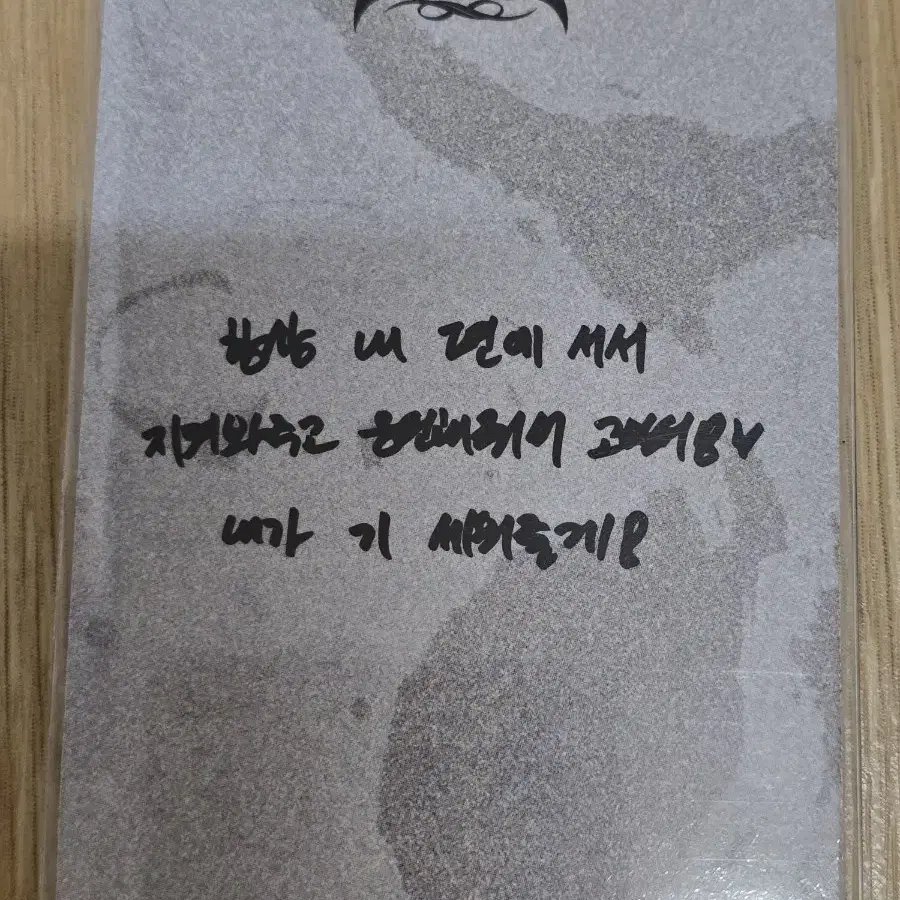 항상 내 편에 서서
지켜봐주고 응원해줘서 고마워요♥
내가 기 세워줄게!